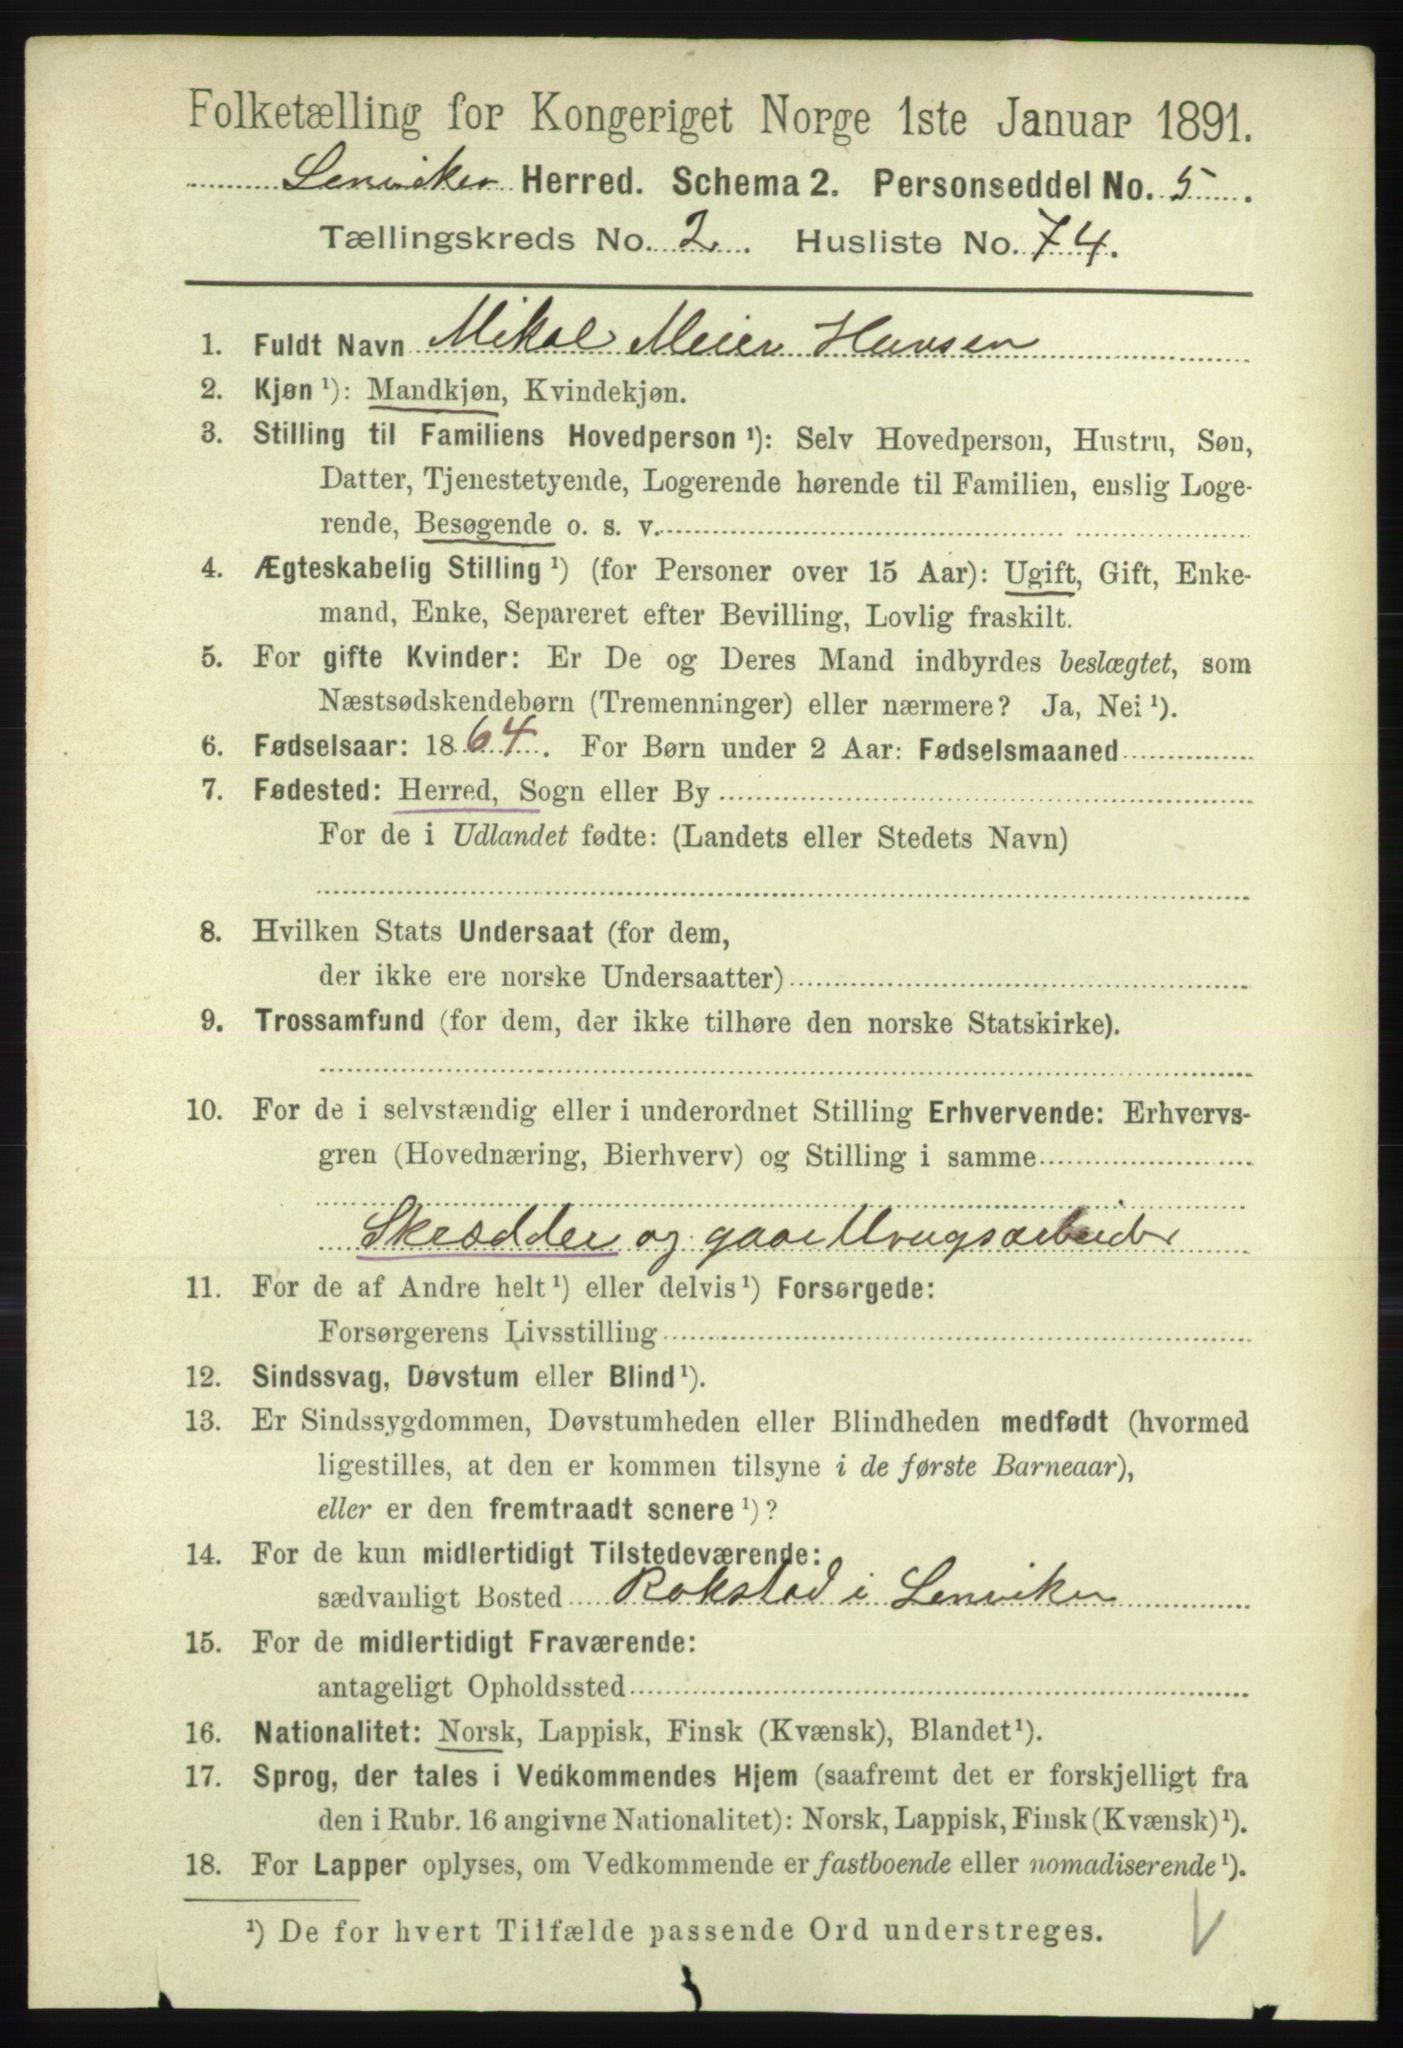 Folketælling for Kongeriget Norge 1ste Januar 1891.
Lenviken Herred. Schema 2. Personseddel No. 5.
Tællingskreds No. 2. Husliste No. 74.
1. Fuldt Navn Mikal Meier Hansen
2. Kjøn ¹): Mandkjøn, Kvindekjøn.
3. Stilling til Familiens Hovedperson ¹): Selv Hovedperson, Hustru, Søn,
Datter, Tjenestetyende, Logerende hørende til Familien, enslig Loge-
rende, Besøgende o. s. v.
4. Ægteskabelig Stilling ¹) (for Personer over 15 Aar): Ugift, Gift, Enke-
mand, Enke, Separeret efter Bevilling, Lovlig fraskilt.
5. For gifte Kvinder: Er De og Deres Mand indbyrdes beslægtet, som
Næstsødskendebørn (Tremenninger) eller nærmere? Ja, Nei ¹).
6. Fødselsaar: 1864. For Børn under 2 Aar: Fødselsmaaned
7. Fødested: Herred, Sogn eller By
For de i Udlandet fødte: (Landets eller Stedets Navn)
8. Hvilken Stats Undersaat (for dem,
der ikke ere norske Undersaatter)
9. Trossamfund (for dem, der ikke tilhøre den norske Statskirke).
10. For de i selvstændig eller i underordnet Stilling Erhvervende: Erhvervs-
gren (Hovednæring, Bierhverv) og Stilling i samme
Skrædder og gaar
11. For de af Andre helt ¹) eller delvis ¹) Forsørgede:
Forsørgerens Livsstilling
12. Sindssvag, Døvstum eller Blind ¹).
13. Er Sindssygdommen, Døvstumheden eller Blindheden medfødt (hvormed
ligestilles, at den er kommen tilsyne i de første Barneaar),
eller er den fremtraadt senere ¹)?
14. For de kun midlertidigt Tilstedeværende:
sædvanligt Bosted Rokstad i Lenviken
15. For de midlertidigt Fraværende:
antageligt Opholdssted
16. Nationalitet: Norsk, Lappisk, Finsk (Kvænsk), Blandet ¹).
17. Sprog, der tales i Vedkommendes Hjem (saafremt det er forskjelligt fra
den i Rubr. 16 angivne Nationalitet): Norsk, Lappisk, Finsk (Kvænsk) ¹).
18. For Lapper oplyses, om Vedkommende er fastboende eller nomadiserende ¹).
¹) De for hvert Tilfælde passende Ord understreges.